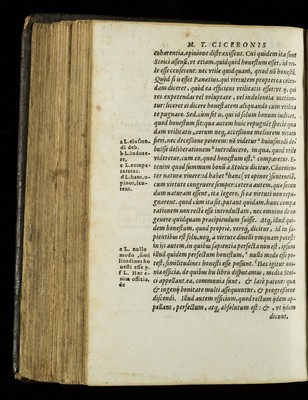 M. T. CICERONIS
cohærentia, opinione distraxissent. Cui quidem ita sunt
Stoici assensi, ut et, quidquid honestum esset, id uti-
le esse censerent: nec utile quidquam, quod non honestũ.
Quòd si is esset Panætius, qui virtutem propterea colen-
dam diceret, quòd ea efficiens utilitatis esset: ut ij, qui
res expetendas vel voluptate, vel indolentia metiun-
tur: liceret ei dicere honestatem aliquando cum utilita
te pugnare. Sed, cùm sit is, qui id solum bonum iudicet,
quod honestum sit: quæ autem huic repugnēt specie qua
dam utilitatis, eorum neq; accessione meliorem vitam
fieri, nec decessione peiorem: nō videtur eius
busce deliberationem introducere, in qua, quod utile
videretur, cum eo, quod honestum est, compararet. E-
tenim quod summum bonũ à Stoicis dicitur, Conuenien-
ter naturæ viuere: id habet hanc (ut opinor) sententiã,
cum virtute congruere semper: cetera autem, quæ secun
dum naturam essent, ita legere, si ea virtuti non repu-
gnarent. quod cùm ita sit, putant quidam. hanc compa
rationem non rectè esse introductam, nec omnino de eo
genere quidquam præcipiendum fuisse. Atq; illud qui-
dem honestum, quod propriè, verèq; dicitur, id in sa-
pientibus est solis, neq; à virtute diuelli unquam potest:
in iis autem, in quibus sapientia perfecta nõ est, ipsum
illud quidem perfectum honestum, nullo modo esse po-
test, similitudines honesti esse possunt. Hæc igitur om-
nia officia, de quibus his libris disputamus, media Stoi-
ci appellant. ea, communia sunt, & latè patent: quæ
& ingenij bonitate multi assequuntur, & progressione
discendi. Illud autem officium, quod rectum ijdem ap-
pellant, perfectum, atq; absolutum est: &, ut ijdem
dicunt,
a L. eius
di deb.
b L. indole-
re.
c L. compa-
raretur.
d L. hanc, o-
pinor, sen-
ten.
e L. nullo
modo, simi
litudines ho
nesti esse p.
f L. Hæc e-
nim officia,
de